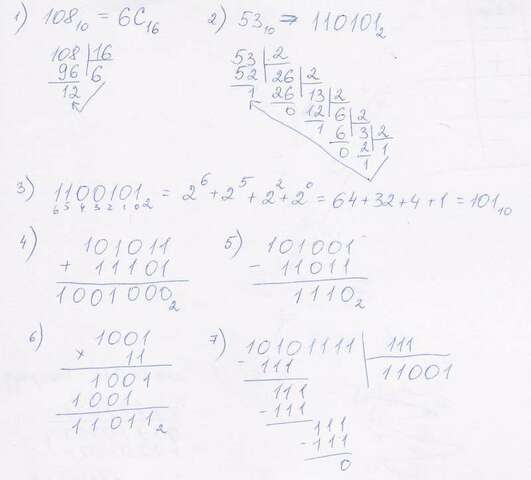 1) 108₁₀ = 6C₁₆
108 | 16
96 | 6
12
2) 53₁₀ ⇒ 110101₂
53 | 2
52 | 26 | 2
1 26 | 13 | 2
0 12 | 6 | 2
1 6 | 3 | 2
0 2 | 1
1
3) 1100101₂ = 2⁶ + 2⁵ + 2² + 2⁰ = 64 + 32 + 4 + 1 = 101₁₀
6 5 4 3 2 1 0
4) 101011
+ 11101
1001000₂
5) 101001
- 11011
1110₂
6) 1001
× 11
1001
1001
11011₂
7) 10101111 | 111
- 111 | 11001
111
- 111
111
- 111
0